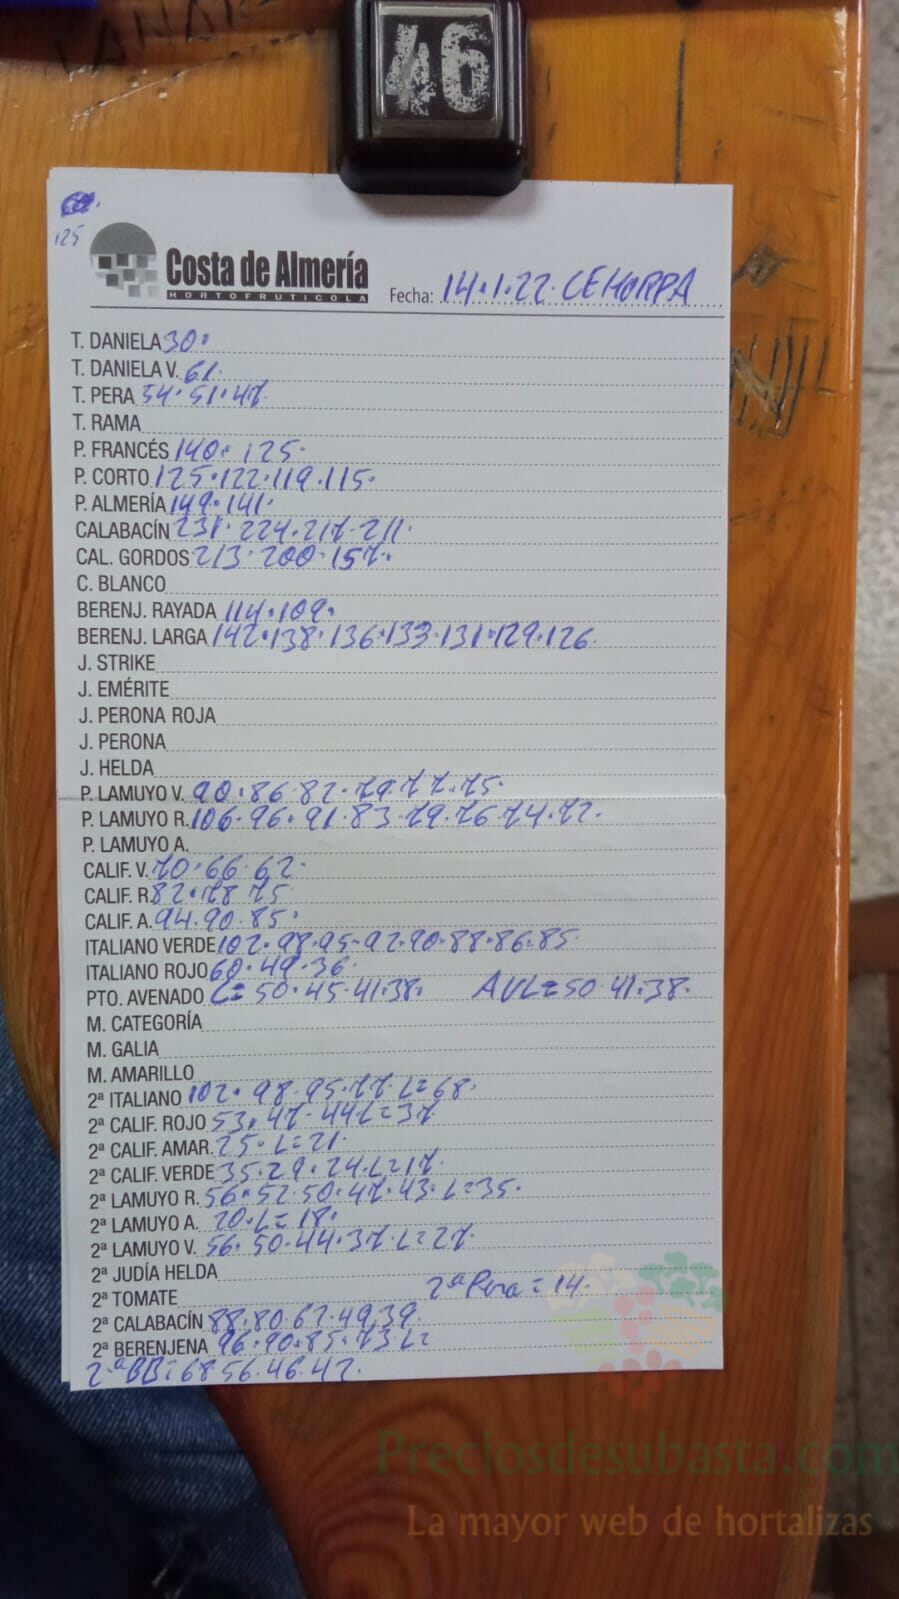 46
125
Costa de Almería
HORTOFRUTICOLA
Fecha: 14.1.22. CEHORPA
T. DANIELA 30.
T. DANIELA V. 61.
T. PERA 54.51.47.
T. RAMA
P. FRANCÉS 140. 125.
P. CORTO 125.122.119.115.
P. ALMERÍA 149.141.
CALABACÍN 231. 224.217.211.
CAL. GORDOS 213.200.157.
C. BLANCO
BERENJ. RAYADA 114.109.
BERENJ. LARGA 142.138.136.133.131.129.126.
J. STRIKE
J. EMÉRITE
J. PERONA ROJA
J. PERONA
J. HELDA
P. LAMUYO V. 90.86.82.79.77.75.
P. LAMUYO R. 106.96.91.83.79.76.74.72.
P. LAMUYO A.
CALIF. V. 70.66.62.
CALIF. R. 82.78 75
CALIF. A. 94.90.85.
ITALIANO VERDE 102.98.95.92.90.88.86.85.
ITALIANO ROJO 60.49.36.
PTO. AVENADO L= 50.45.41.38. AVL=50.41.38.
M. CATEGORÍA
M. GALIA
M. AMARILLO
2ª ITALIANO 102. 98.95.77. L=68.
2ª CALIF. ROJO 53.47.44 L=37
2ª CALIF. AMAR. 25. L=21.
2ª CALIF. VERDE 35.29.24.L=17.
2ª LAMUYO R. 56.52.50.47.43. L=35.
2ª LAMUYO A. 20.L=18.
2ª LAMUYO V. 56.50.44.37.L=27.
2ª JUDÍA HELDA
2ª Pera = 14.
2ª TOMATE
2ª CALABACÍN 88.80.67.49.39.
2ª BERENJENA 96.90.85.73 L=
2ªBB:68 56.46.42.
Preciosdesubasta.com
La mayor web de hortalizas